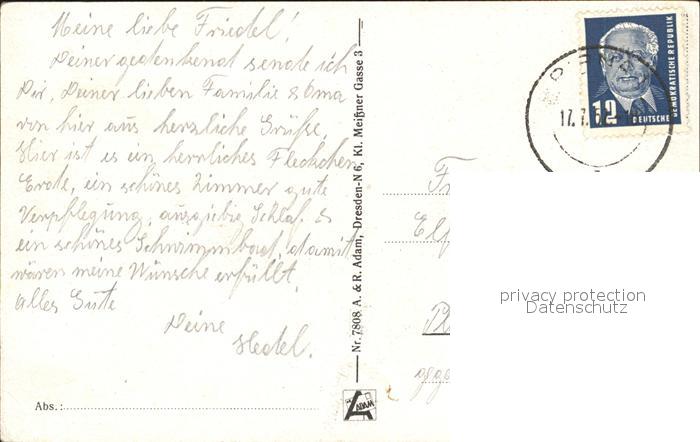 Meine liebe Friedel!
Deiner gedenkend sende ich
Dir, Deiner lieben Familie & Oma
von hier aus herzliche Grüße.
Hier ist es ein herrliches Fleckchen
Erde, ein schönes Zimmer gute
Verpflegung, ausgiebig Schlaf &
ein schönes Schwimmbad, damit
wären meine Wünsche erfüllt.
Alles Gute
Deine
Hedel.
Abs.:
Nr. 7808 A. & R. Adam, Dresden-N 6, Kl. Meißner Gasse 3
ADAM
12
DEUTSCHE
DEMOKRATISCHE REPUBLIK
17.7.5
Fr
Elf
privacy protection
Datenschutz